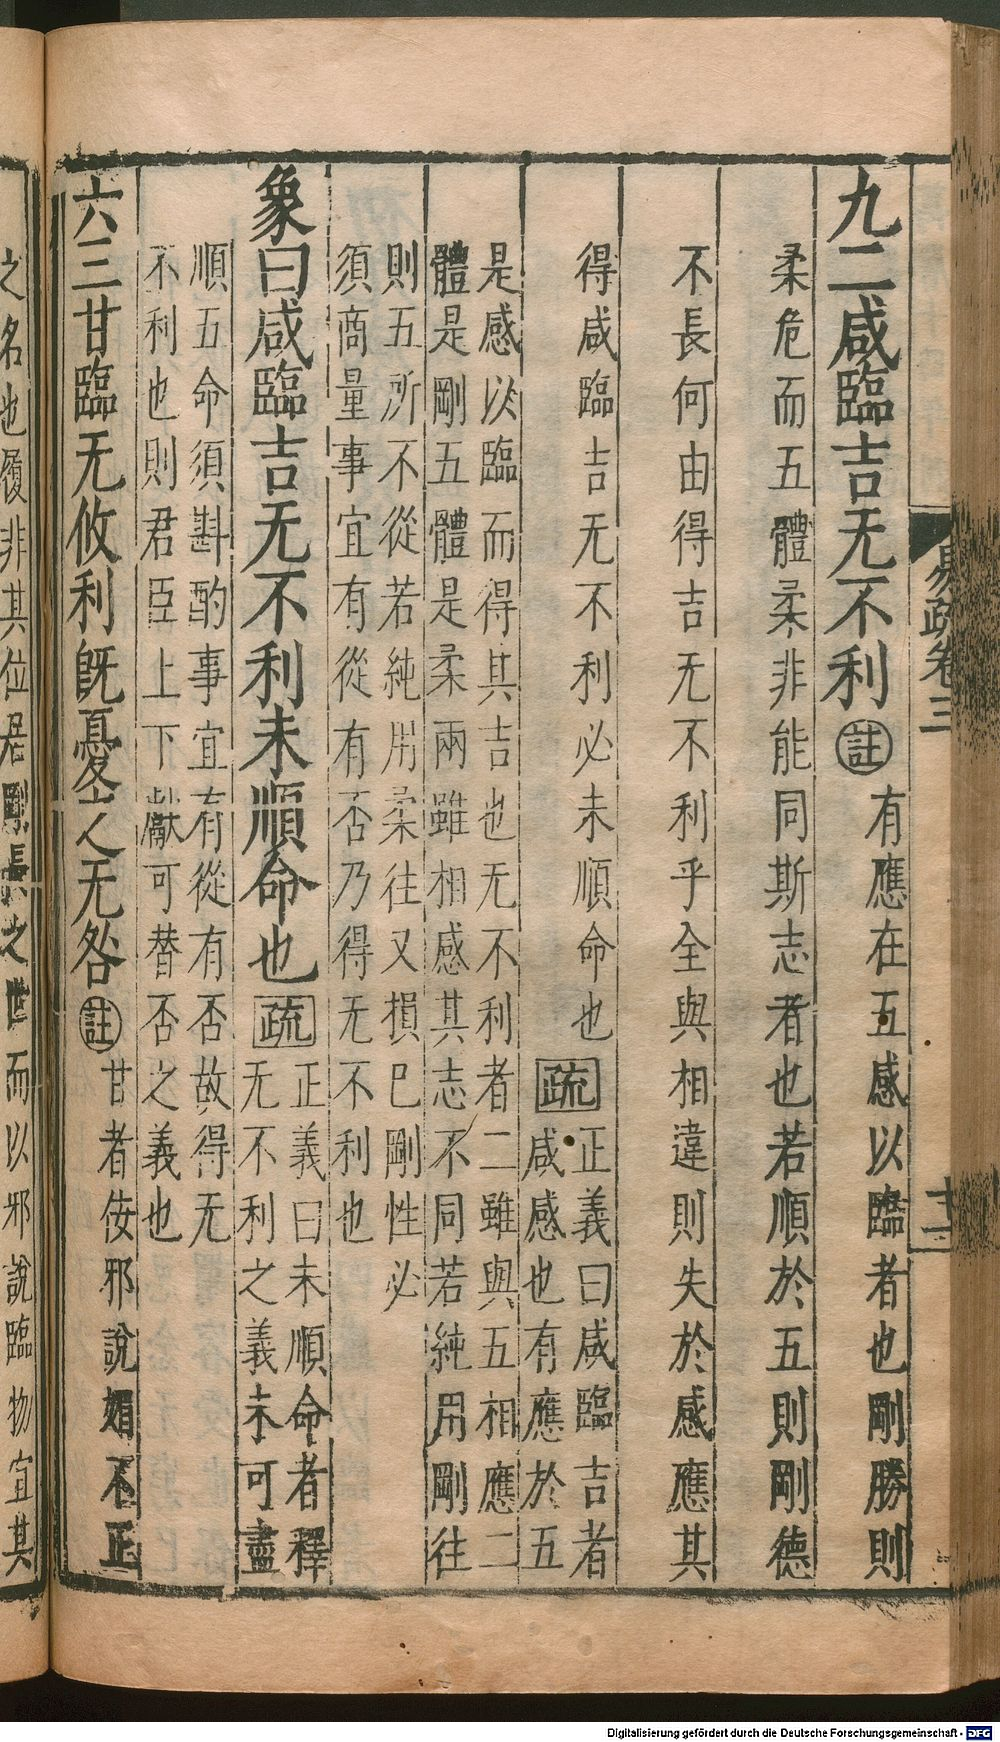 易疏卷三
十二
九二咸臨吉无不利註有應在五感以臨者也剛勝則
柔危而五體柔非能同斯志者也若順於五則剛德
不長何由得吉无不利乎全與相違則失於感應其
得咸臨吉无不利必未順命也疏正義曰咸臨吉者
咸感也有應於五
是感以臨而得其吉也无不利者二雖與五相應二
體是剛五體是柔兩雖相感其志不同若純用剛往
則五所不從若純用柔往又損巳剛性必
須商量事宜有從有否乃得无不利也
象曰咸臨吉无不利未順命也疏正義曰未順命者釋
无不利之義未可盡
順五命須斟酌事宜有從有否故得无
不利也則君臣上下獻可替否之義也
六三甘臨无攸利旣憂之无咎註甘者佞邪說媚不正
之名也履非其位居剛長之世而以邪說臨物宜其
Digitalisierung gefördert durch die Deutsche Forschungsgemeinschaft - DFG